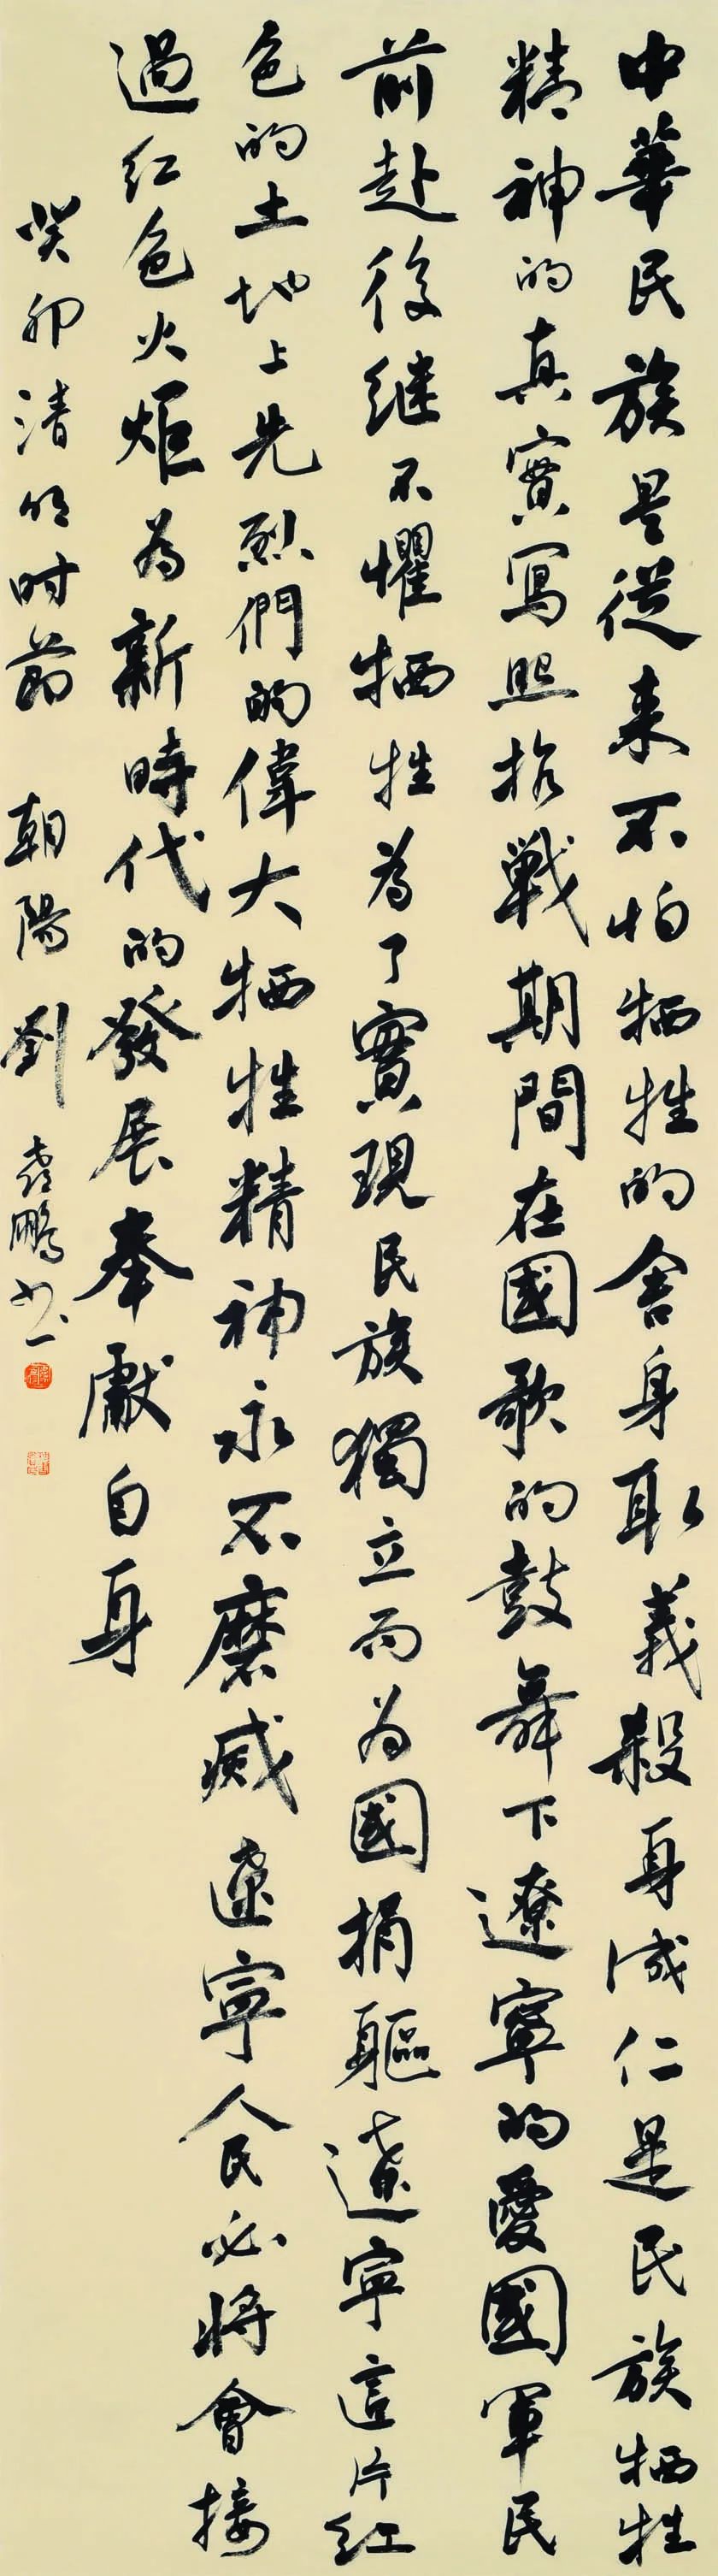 中華民族是從来不怕牺牲的舍身取義殺身成仁是民族牺牲
精神的真實寫照抗戰期間在國歌的鼓舞下遼寧的愛國軍民
前赴後継不懼牺牲為了實現民族獨立而为國捐軀遼寧這片红
色的土地上先烈們的偉大牺牲精神永不磨滅遼寧人民必將會接
過红色火炬为新時代的發展奉獻自身
癸卯清明时節 朝陽 劉 鵬书